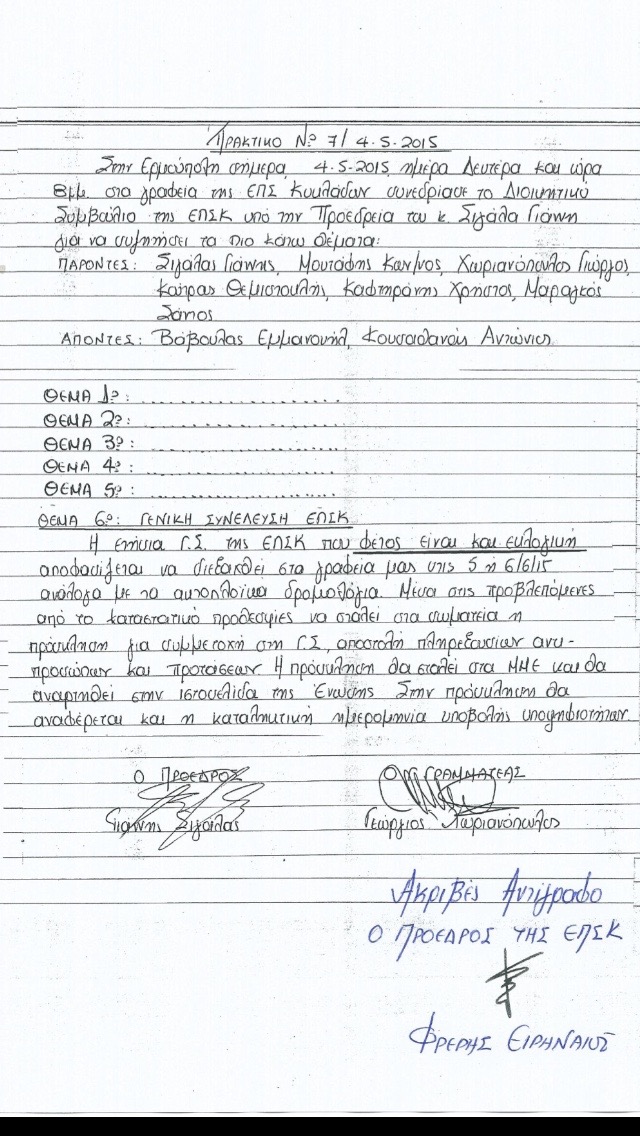 ΠΡΑΚΤΙΚΟ Νο 7/ 4.5.2015
Στην Ερμούπολη σήμερα, 4.5.2015, ημέρα Δευτέρα και ώρα
8μμ. στα γραφεία της ΕΠΣ Κυκλάδων συνεδρίασε το Διοικητικό
Συμβούλιο της ΕΠΣΚ υπό την Προεδρεία του κ. Σιγάλα Γιάννη
για να συζητήσει τα πιο κάτω θέματα:
ΠΑΡΟΝΤΕΣ: Σιγάλας Γιάννης, Μουτάφης Κων/νος, Χωριανόπουλος Γιώργος,
Θεμιστοκλής, Χρήστος, Μαραγκός
ΑΠΟΝΤΕΣ: Βαβούλας Εμμανουήλ, Κουσαθανάς Αντώνιος
ΘΕΜΑ 1ο: ........................
ΘΕΜΑ 2ο: ........................
ΘΕΜΑ 3ο: ........................
ΘΕΜΑ 4ο: ........................
ΘΕΜΑ 5ο: ........................
ΘΕΜΑ 6ο: ΓΕΝΙΚΗ ΣΥΝΕΛΕΥΣΗ ΕΠΣΚ
Η ετήσια Γ.Σ. της ΕΠΣΚ που φέτος είναι και εκλογική
αποφασίζεται να διεξαχθεί στα γραφεία μας στις 5 ή 6/6/15
ανάλογα με τα ακτοπλοϊκά δρομολόγια. Μέσα στις προβλεπόμενες
από το καταστατικό προθεσμίες να σταλεί στα σωματεία η
πρόσκληση για συμμετοχή στη Γ.Σ, αποστολή πληρεξουσίων αντι-
προσώπων και προτάσεων. Η πρόσκληση θα σταλεί στα ΜΜΕ και θα
αναρτηθεί στην ιστοσελίδα της Ένωσης. Στην πρόσκληση θα
αναφέρεται και η καταληκτική ημερομηνία υποβολής υποψηφιοτήτων.
Ο ΠΡΟΕΔΡΟΣ Ο ΓΡΑΜΜΑΤΕΑΣ
Γιάννης Σιγάλας Γεώργιος Χωριανόπουλος
Ακριβές Αντίγραφο
Ο ΠΡΟΕΔΡΟΣ ΤΗΣ ΕΠΣΚ
ΦΡΕΡΗΣ ΕΙΡΗΝΑΙΟΣ